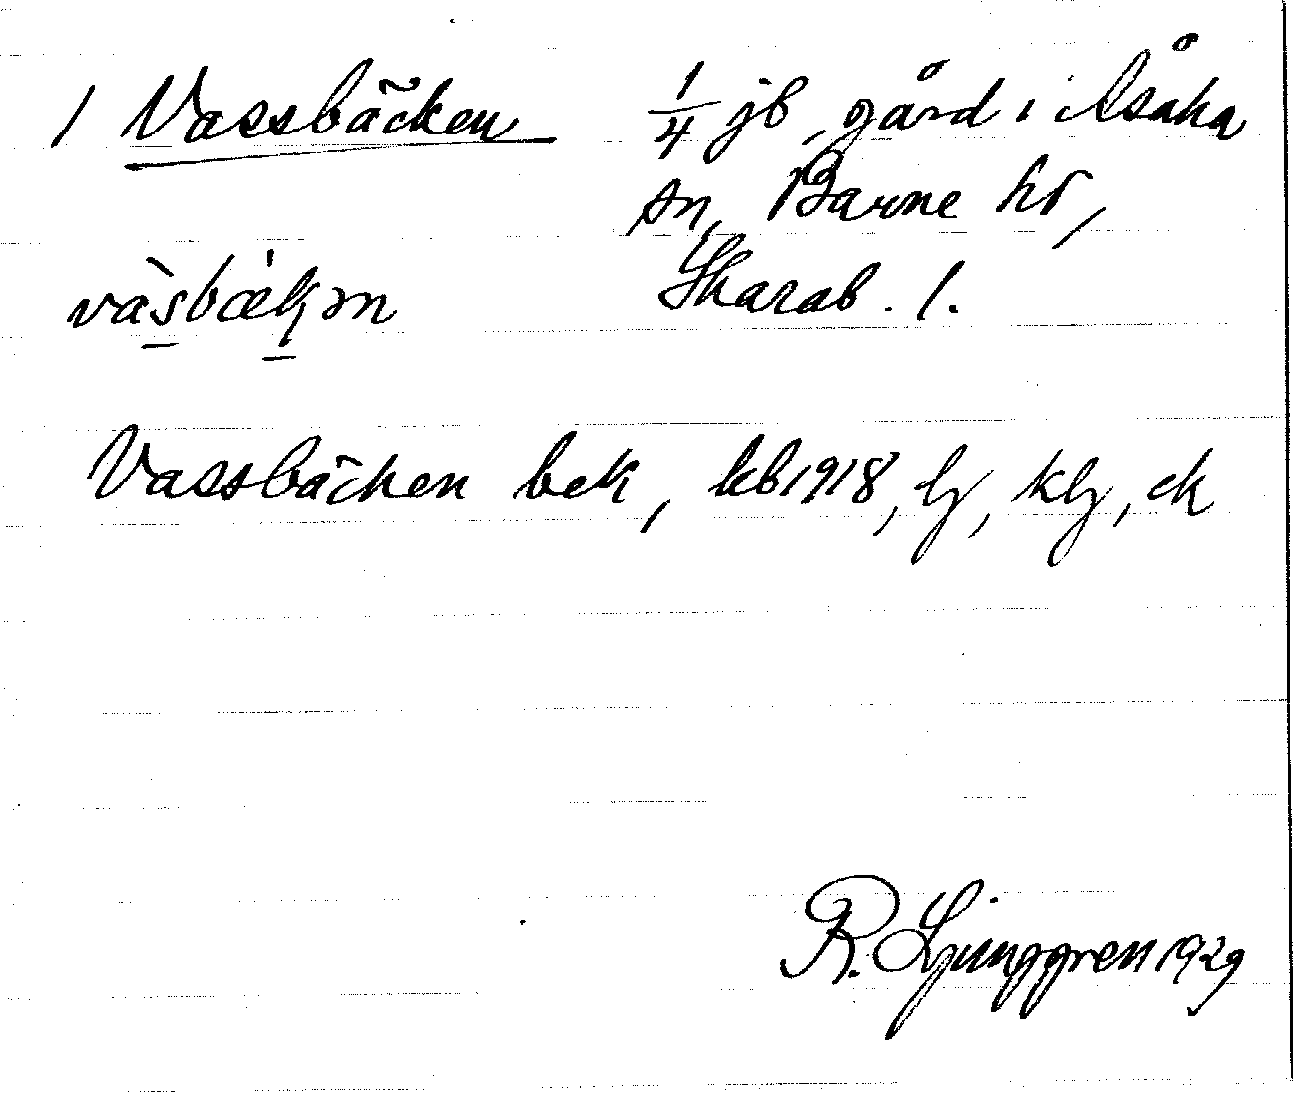 1 Vassbäcken 1/4 jb, gård i Åsaka
sn, Barne hd,
Skarab. l.
vàsbækən
Vassbäcken bek, kb 1918, lj, klj, ek
R. Ljunggren 1929